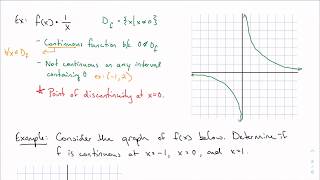 Ex: f(x) = 1/x    D_f = {x | x ≠ 0}
- Continuous function b/c 0 ∉ D_f
∀x ∈ D_f
- Not continuous on any interval
containing 0 ex: (-1, 2)
* Point of discontinuity at x=0.
Example: Consider the graph of f(x) below. Determine if
f is continuous at x=-1, x=0, and x=1.